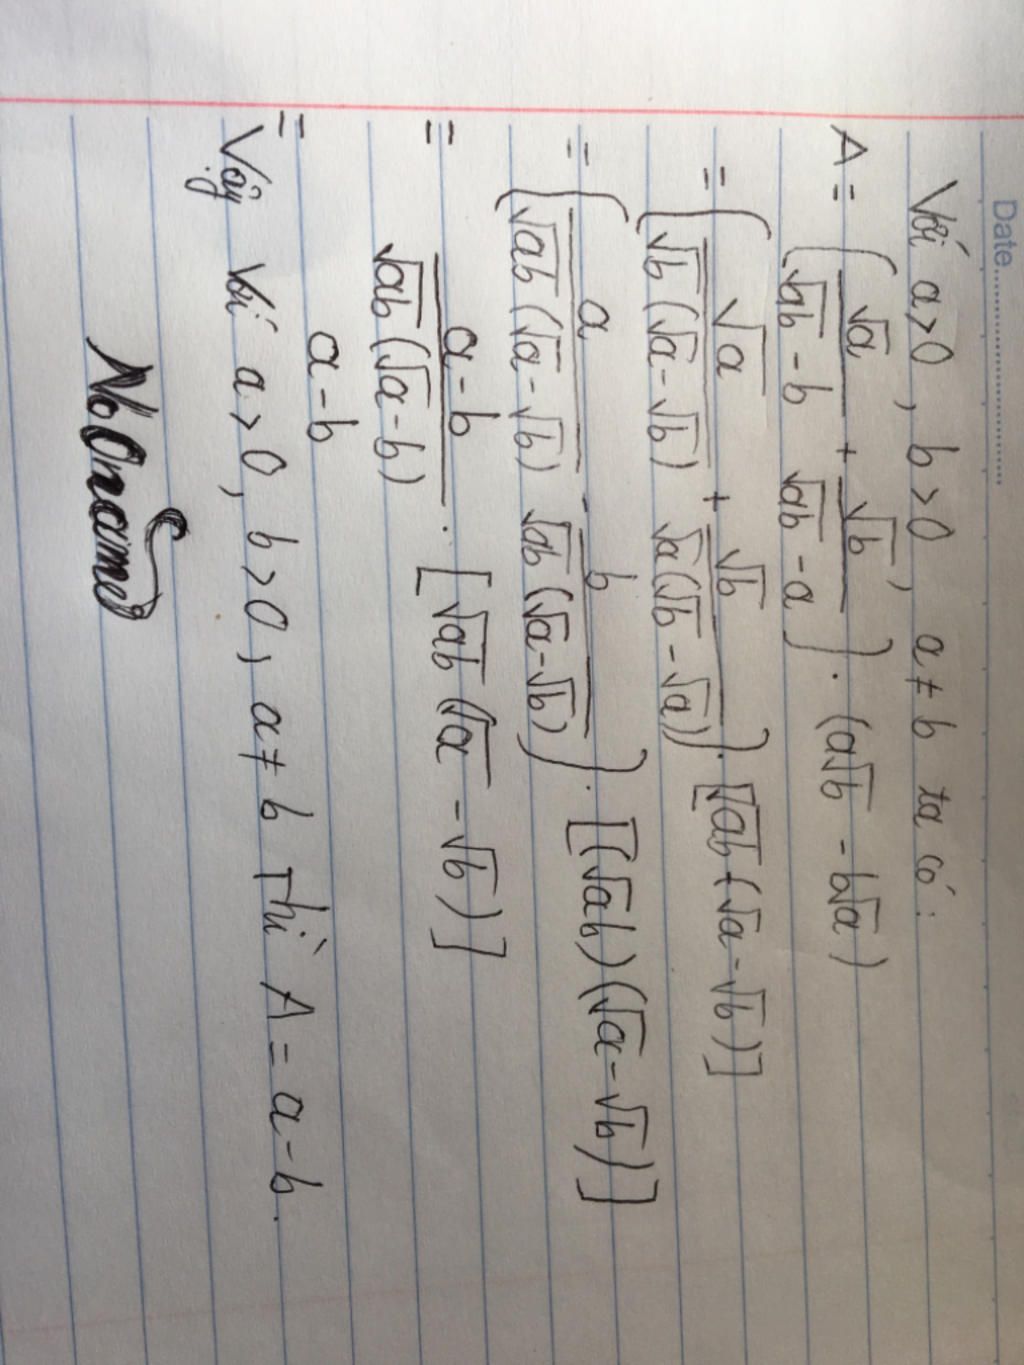 Date...
Với a>0, b>0, a≠b ta có:
A = (√a/(√ab - b) + √b/(√ab - a)) . (a√b - b√a)
= (√a/(√b(√a - √b)) + √b/(√a(√b - √a))) . [√ab (√a - √b)]
= (a/(√ab(√a - √b)) - b/(√ab(√a - √b))) . [(√ab)(√a - √b)]
= (a - b)/(√ab(√a - b)) . [√ab(√a - √b)]
= a - b
Vậy với a>0, b>0, a≠b Thì A = a - b.
NoOname